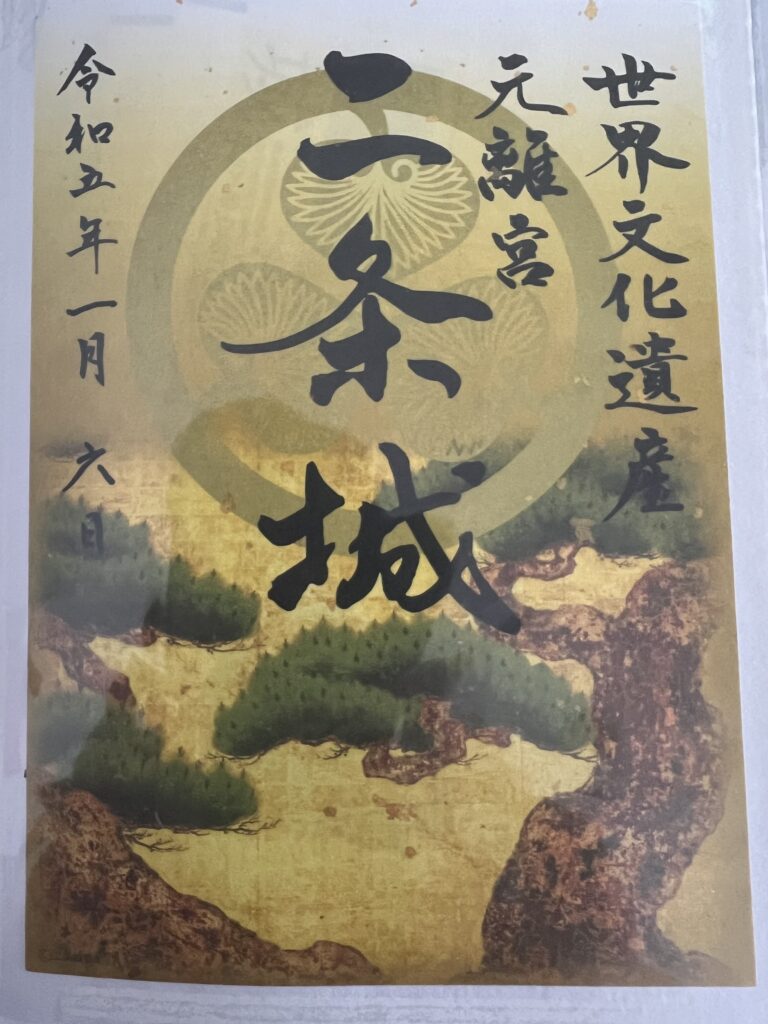 世界文化遺産
元離宮
二条城
令和五年一月六日